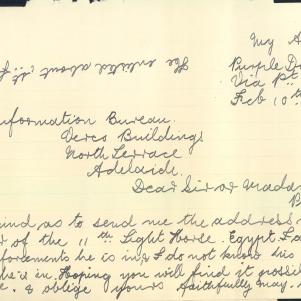 My A
Purple Do
Via Pt.
Feb 10th
She enlisted about
nformation Bureau.
Vercs Buildings
North Terrace
Adelaide.
Dear Sir or Madam
ind as to send me the address
of the 11th Light Horse. Egypt.
forcements he is in & I do not know his
he'd in. Hoping you will find it possi
& oblige yours faithfully